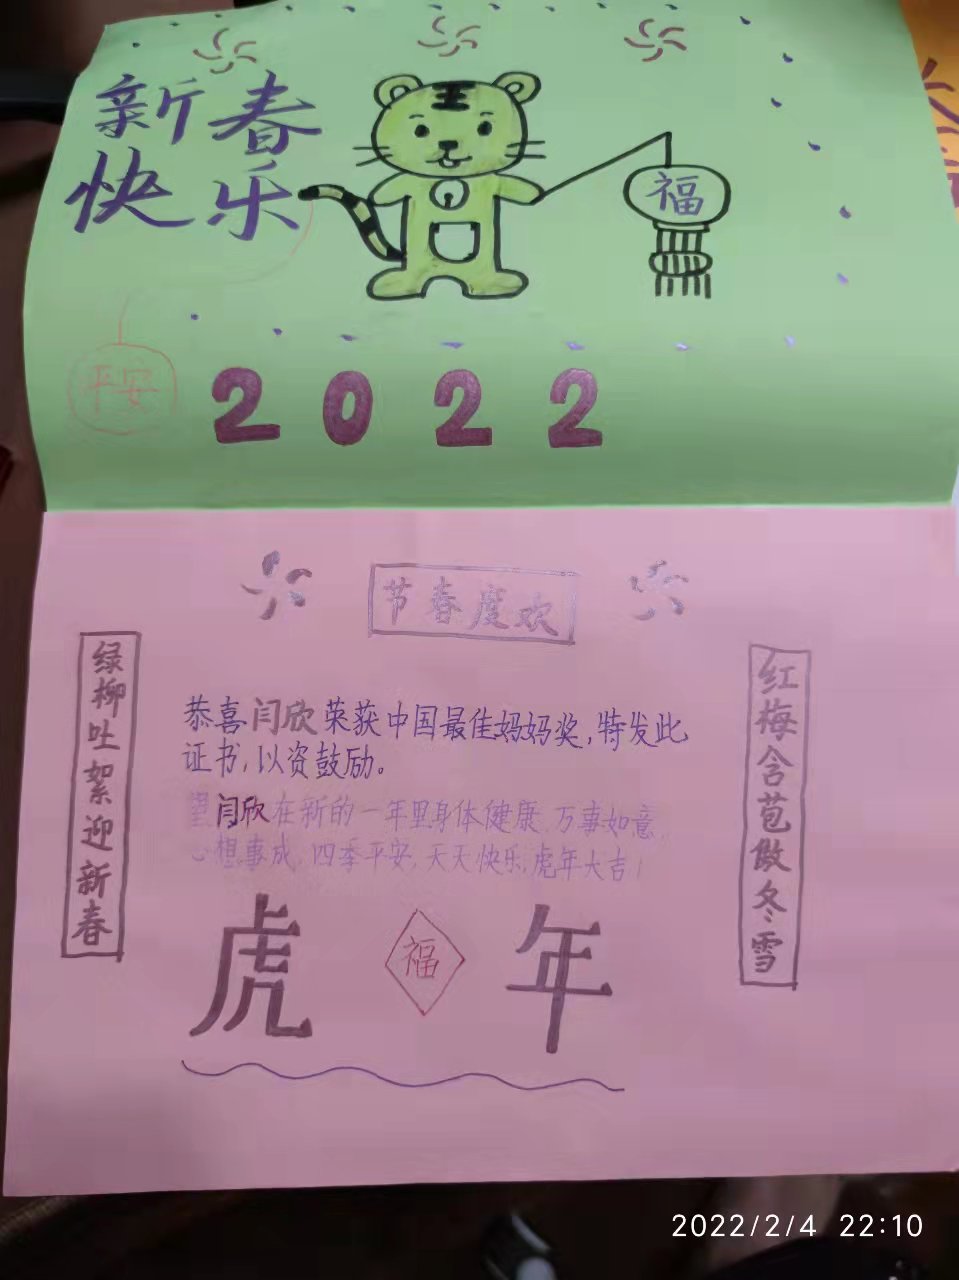 新春
快乐
王
福
平安
2022
节春度欢
绿柳吐絮迎新春
红梅含苞傲冬雪
恭喜闫欣荣获中国最佳妈妈奖,特发此
证书,以资鼓励。
望闫欣在新的一年里身体健康,万事如意,
心想事成,四季平安,天天快乐,虎年大吉!
虎 福 年
2022/2/4 22:10